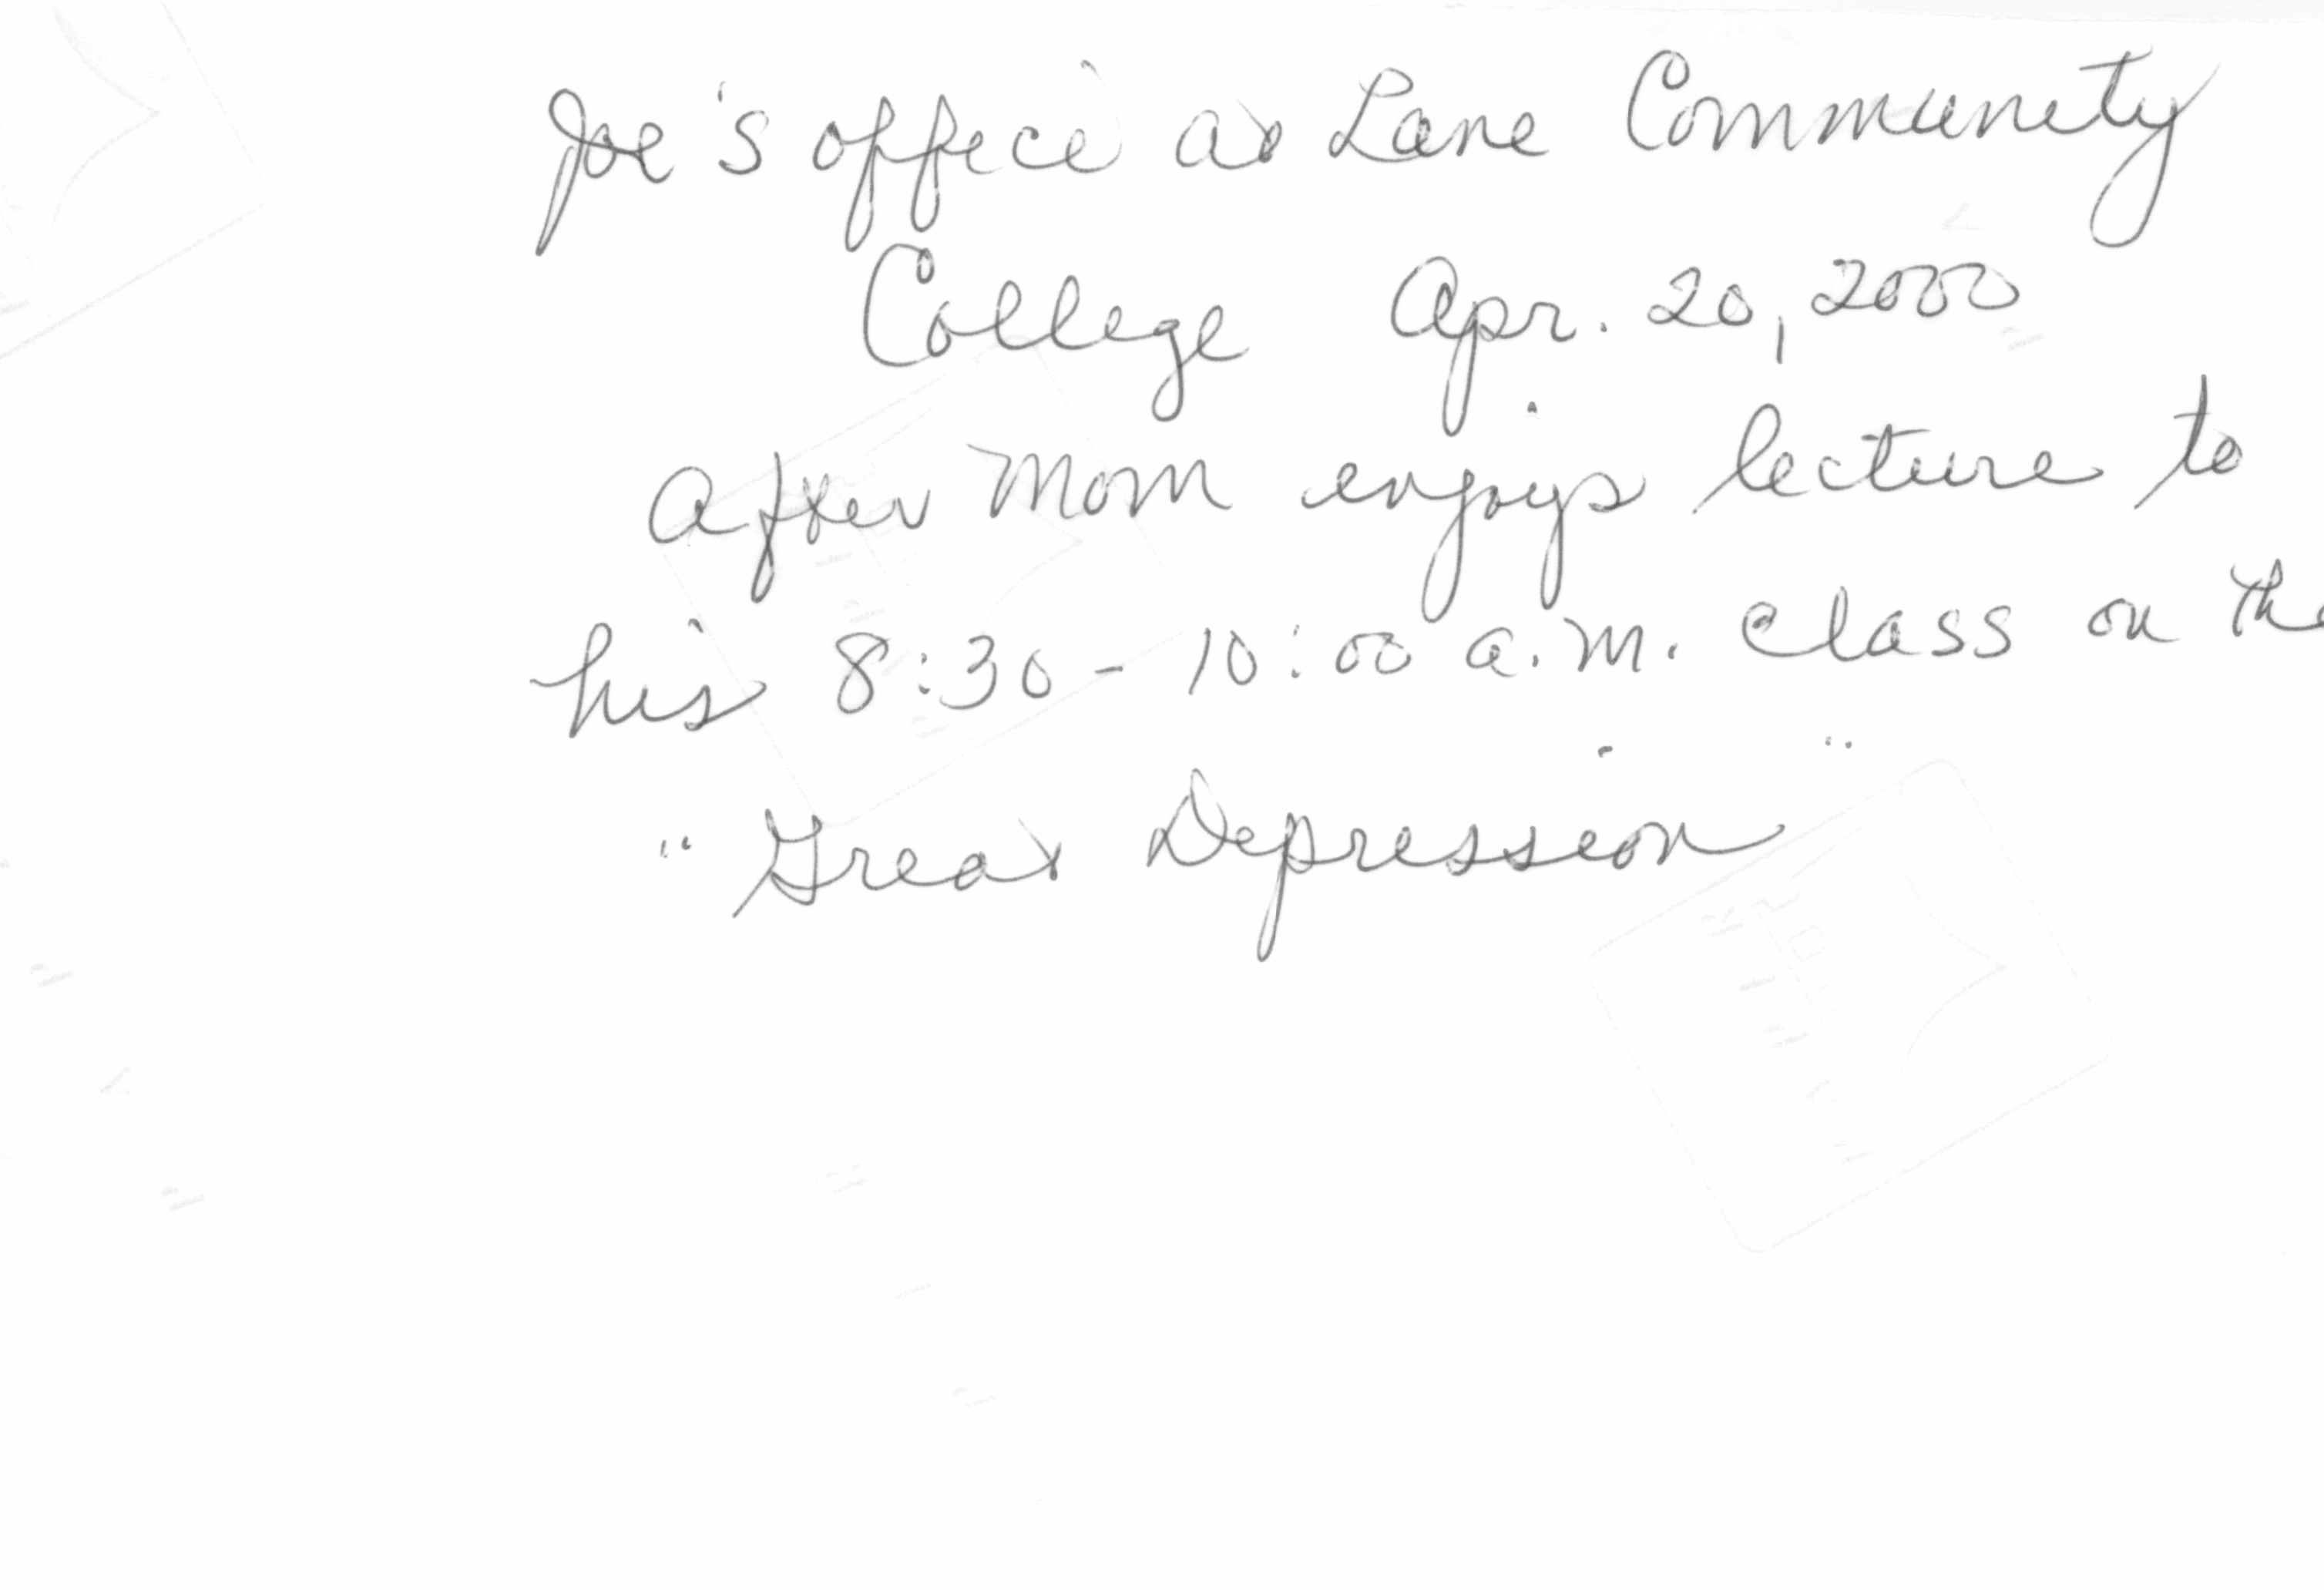 Joe's office at Lane Community
College Apr. 20, 2000
after Mom enjoys lecture to
his 8:30 - 10:00 a.m. class on the
"Great Depression"